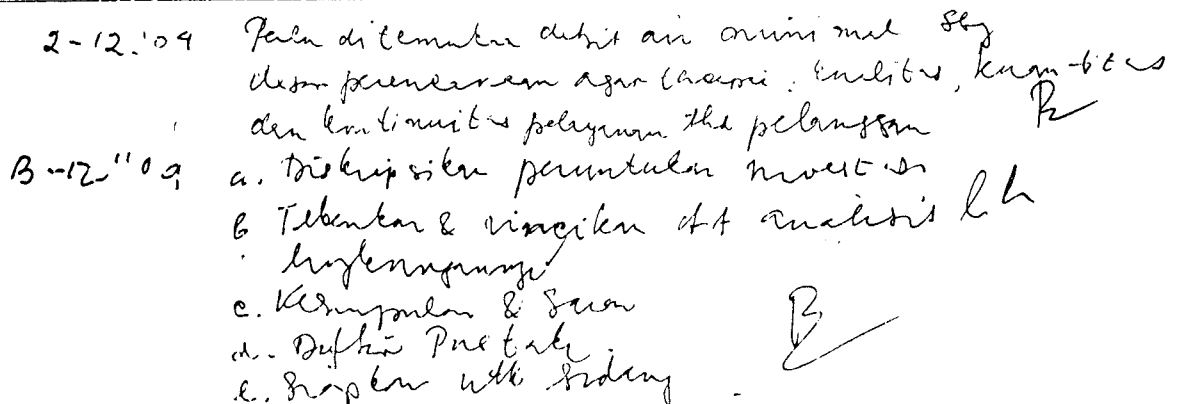 2-12-'09 Perlu ditemukan debit air minimal sbg
dasar perencanaan agar tercapai kualitas, kuantitas
dan kontinuitas pelayanan thd pelanggan
B-12-"09 a. Diskripsikan peruntukan investasi
b Tebankan & rincikan analisis
c. Kesimpulan & Saran
d. Daftar Pustaka.
e. Siapkan utk sidang